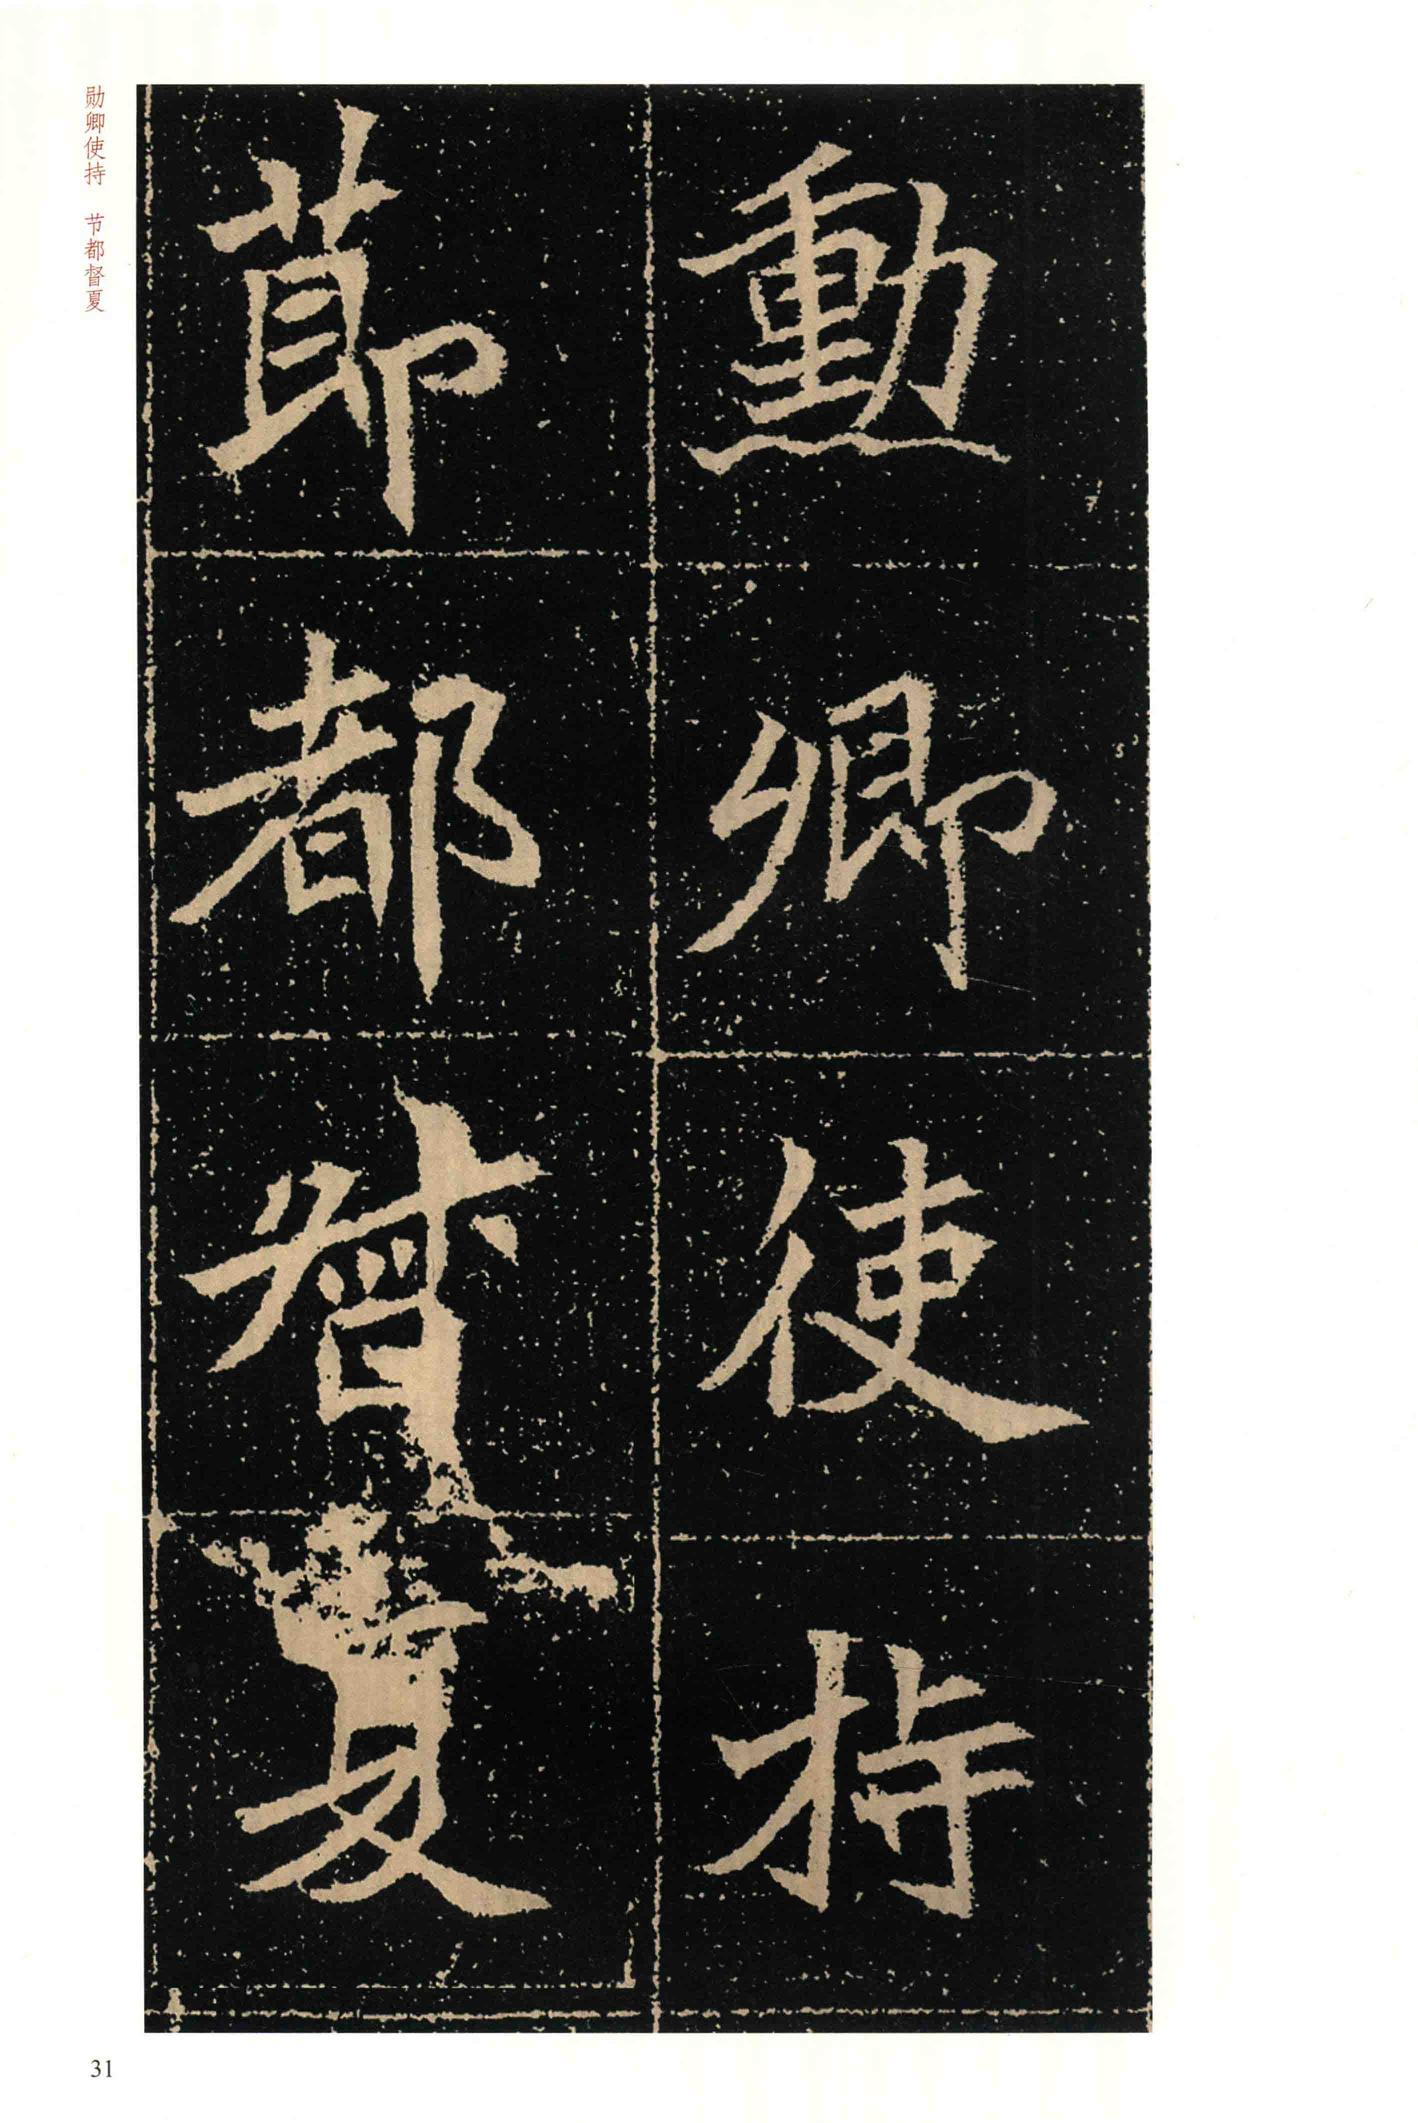 勲卿使持
莭都督夏
勋卿使持 节都督夏
31